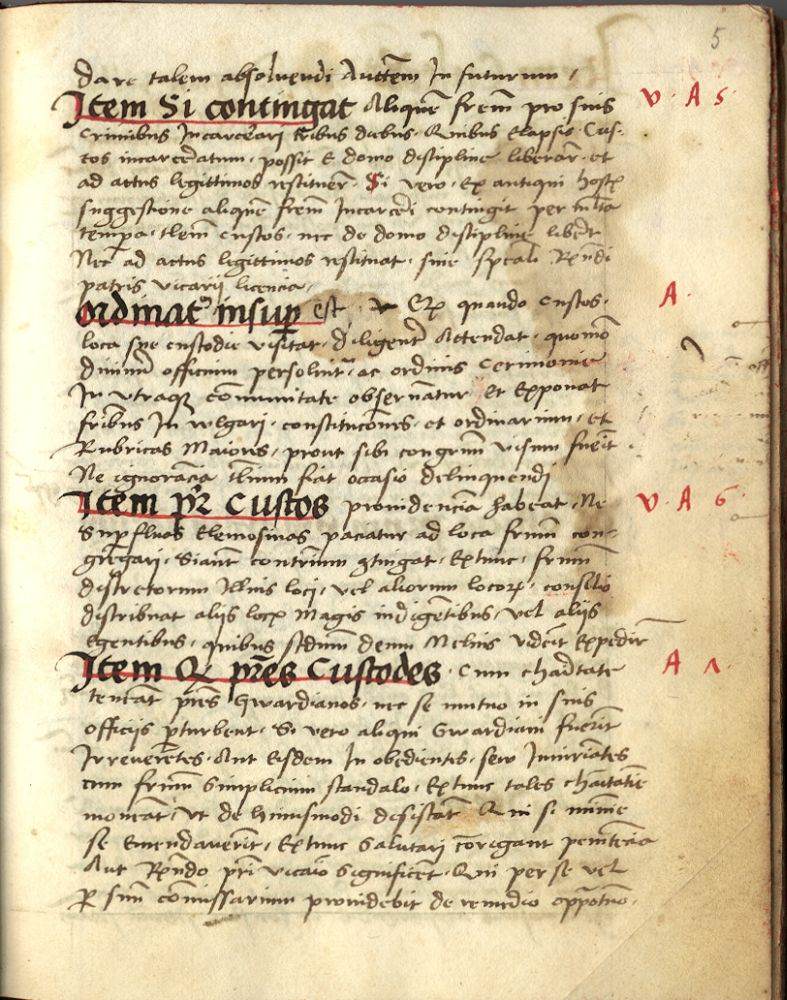 5
dare talem absolvendi Auctem In futurum /
Item Si contingat Aliquē frem̄ pro suis
v · A 5 ·
criminibus Incarcerari tribus diebus · Quibus Elapsis · Cus-
tos incarceratum · possit E domo discipline liberar · et
ad actus legittimos restituer̄ · Si vero · Ex antiqui host
suggestione aliquē frem̄ Incarcerari contingit per
tempa · custos · nec de domo discipline
Nec ad actus legittimos restituat · sine spcali Rndi
patris vicarii licencia ·
ordinat insup est · Qp quando Custos ·
A ·
loca sue custodie visitat · diligentr Attendat · quomō
divinū officium persolvitr · ac ordinis Cerimonie
In utraqꝫ comunitate observantur Et Exponat
fribus In wlgari · constitucōnes · et ordinarium · et
Rubricas Maioris · prout sibi congruū visum fuerit ·
Ne ignorancia fiat occasio delinquendi
Item pr Custos providencia habeat · Ne
v · A 6 ·
Supfluas Elemosinas paciatur ad loca frum con-
gregari · Si autē contrium 9tingat · Extunc · frum
discretorum Illius loci · vel aliorum locorꝝ · consilio
distribuat aliis locis Magis indigētibus · vel aliis
Egentibus · quibus scdum deum Melius videbit Expedir
Item Qp pres Custodes · Cum charitate
A
tencāt pres Gwardianos · nec se mutuo in suis
officijs pturbent · Si vero aliqui Gwardiani fuerit
Irreverētes · Aut Eisdem In obedientes · sew Iniuriātes
cum frum Simplicium scandalo · Extunc tales charitatie
moneāt · Ut de huiusmodi desistāt Qui si minime
se Emendaverit · Extunc Salutari corrigant penitēcia
Aut Rndo pri vicaio Significēt · Qui per se vel
P suū comissarium providebit de remedio oppotuno ·